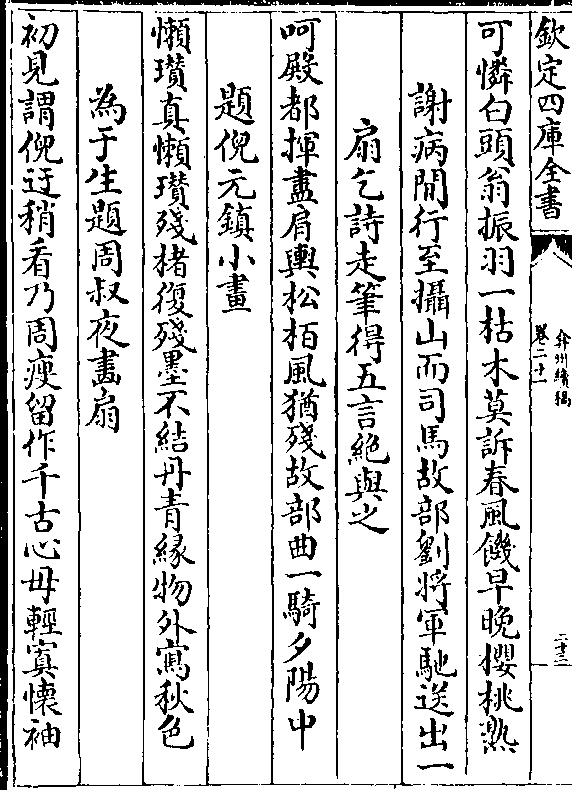 欽定四庫全書
弇州續稿
卷二十一
二十三
可憐白頭翁振羽一枯木莫訴春風饑早晚櫻桃熟
謝病閒行至攝山而司馬故部劉將軍馳送出一
扇乞詩走筆得五言絶與之
呵殿都揮盡肩輿松栢風猶殘故部曲一騎夕陽中
題倪元鎮小畫
懶瓚真懶瓚殘楮復殘墨不結丹青緣物外寫秋色
為于生題周叔夜畫扇
初見謂倪迂稍看乃周瘦留作千古心毋輕寘懷袖